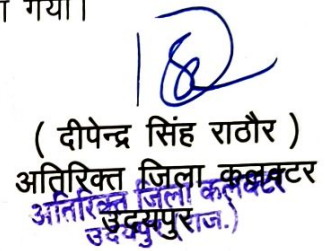 गया।
( दीपेन्द्र सिंह राठौर )
अतिरिक्त जिला कलक्टर
उदयपुर
अतिरिक्त जिला कलेक्टर
उदयपुर (राज.)